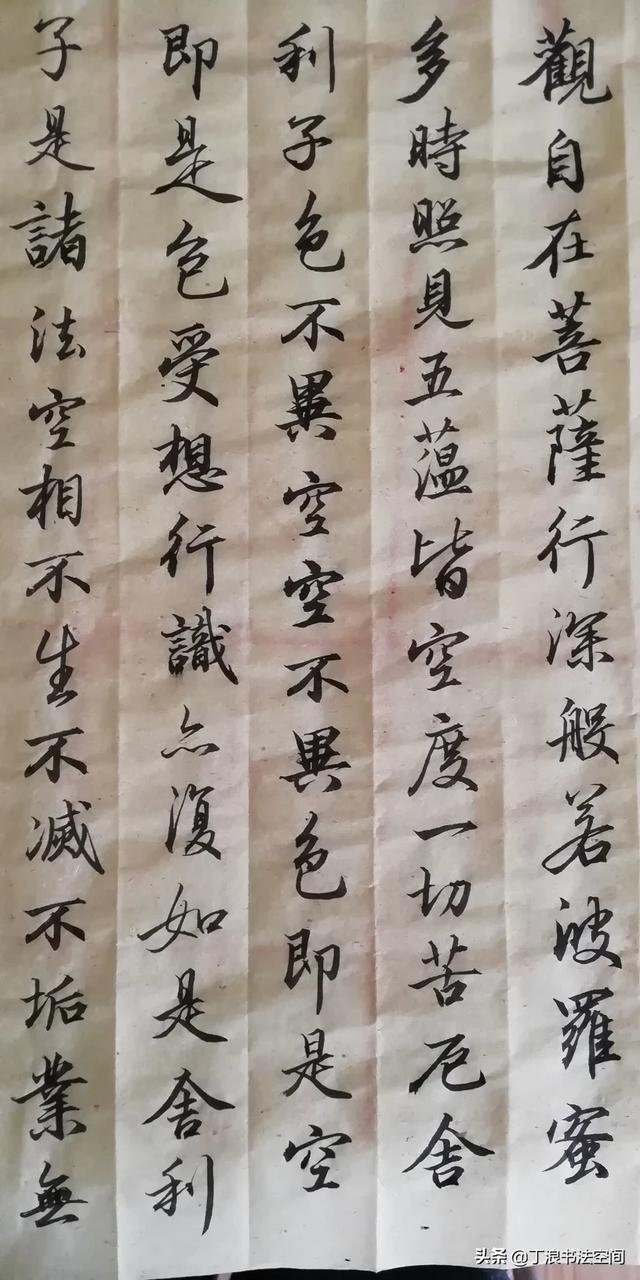 觀自在菩薩行深般若波羅蜜
多時照見五薀皆空度一切苦厄舍
利子色不異空空不異色即是空
即是色受想行識亦復如是舍利
子是諸法空相不生不滅不垢業無
头条 @丁浪书法空间